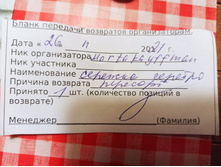 Бланк передачи возвратов организаторам.
Дата « 26 11 2021 г.
Ник организатора
Ник участника
Наименование сережки серебро
Причина возврата пересорт
Принято 1 шт. (количество позиций в
возврате)
Менеджер (Фамилия)